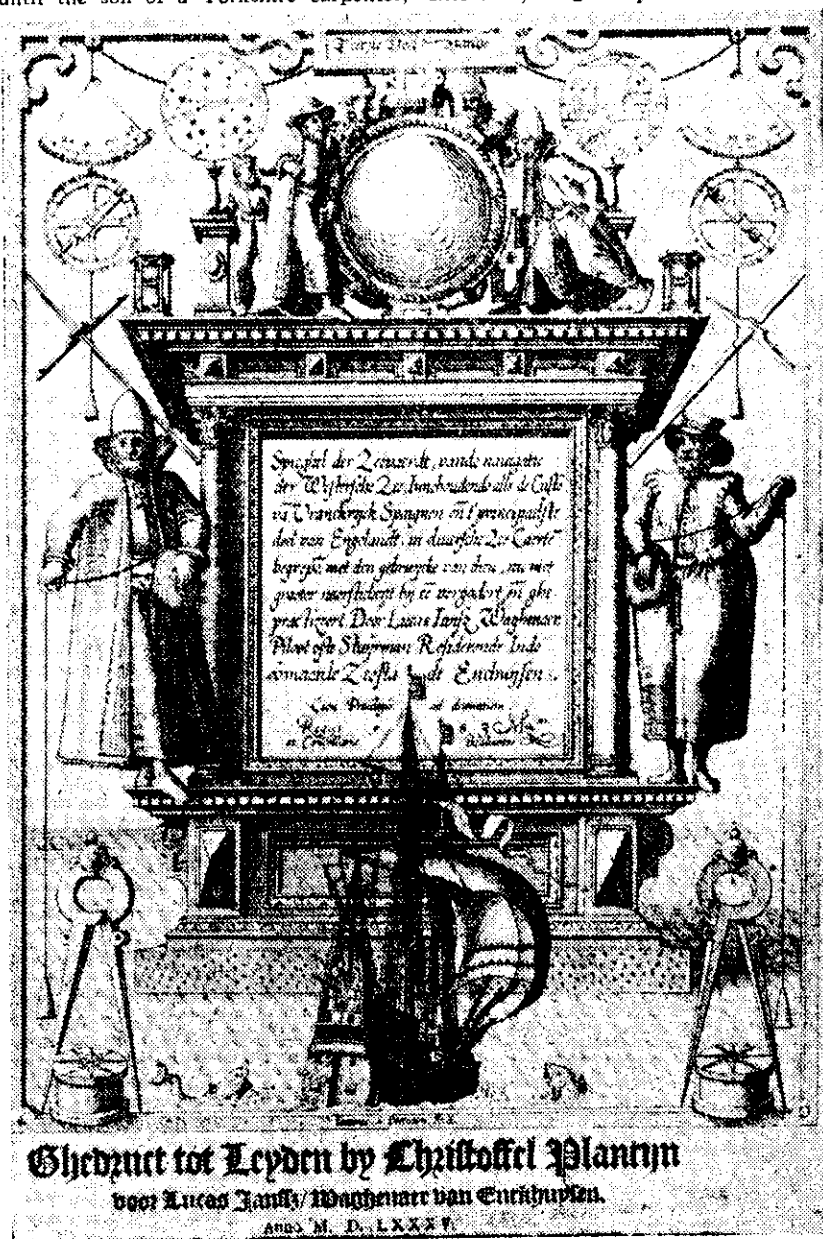 until the son of a Yorkshire carpenter,
Spieghel der Zeevaerdt, vande navigatie
der Westersche Zee, Innehoudende alle de Custẽ
vã Vranckryck Spaignen eñ t'principaelste
deel van Engelandt, in diversche Zee Caertẽ
begrepẽ, met den gebruycke van dien, nu met
grooter naersticheyt by eẽ vergadert eñ ghe
practizeert Door Lucas Iansz Waghenaer
Piloot ofte Stuyrman Residerende Inde
vermaerde Zeestadt Enchuysen.
Cum Privilegio ad
Ghedruct tot Leyden by Christoffel Plantijn
voor Lucas Janssz/Waghenaer van Enckhuysen.
Anno M. D. LXXXV.